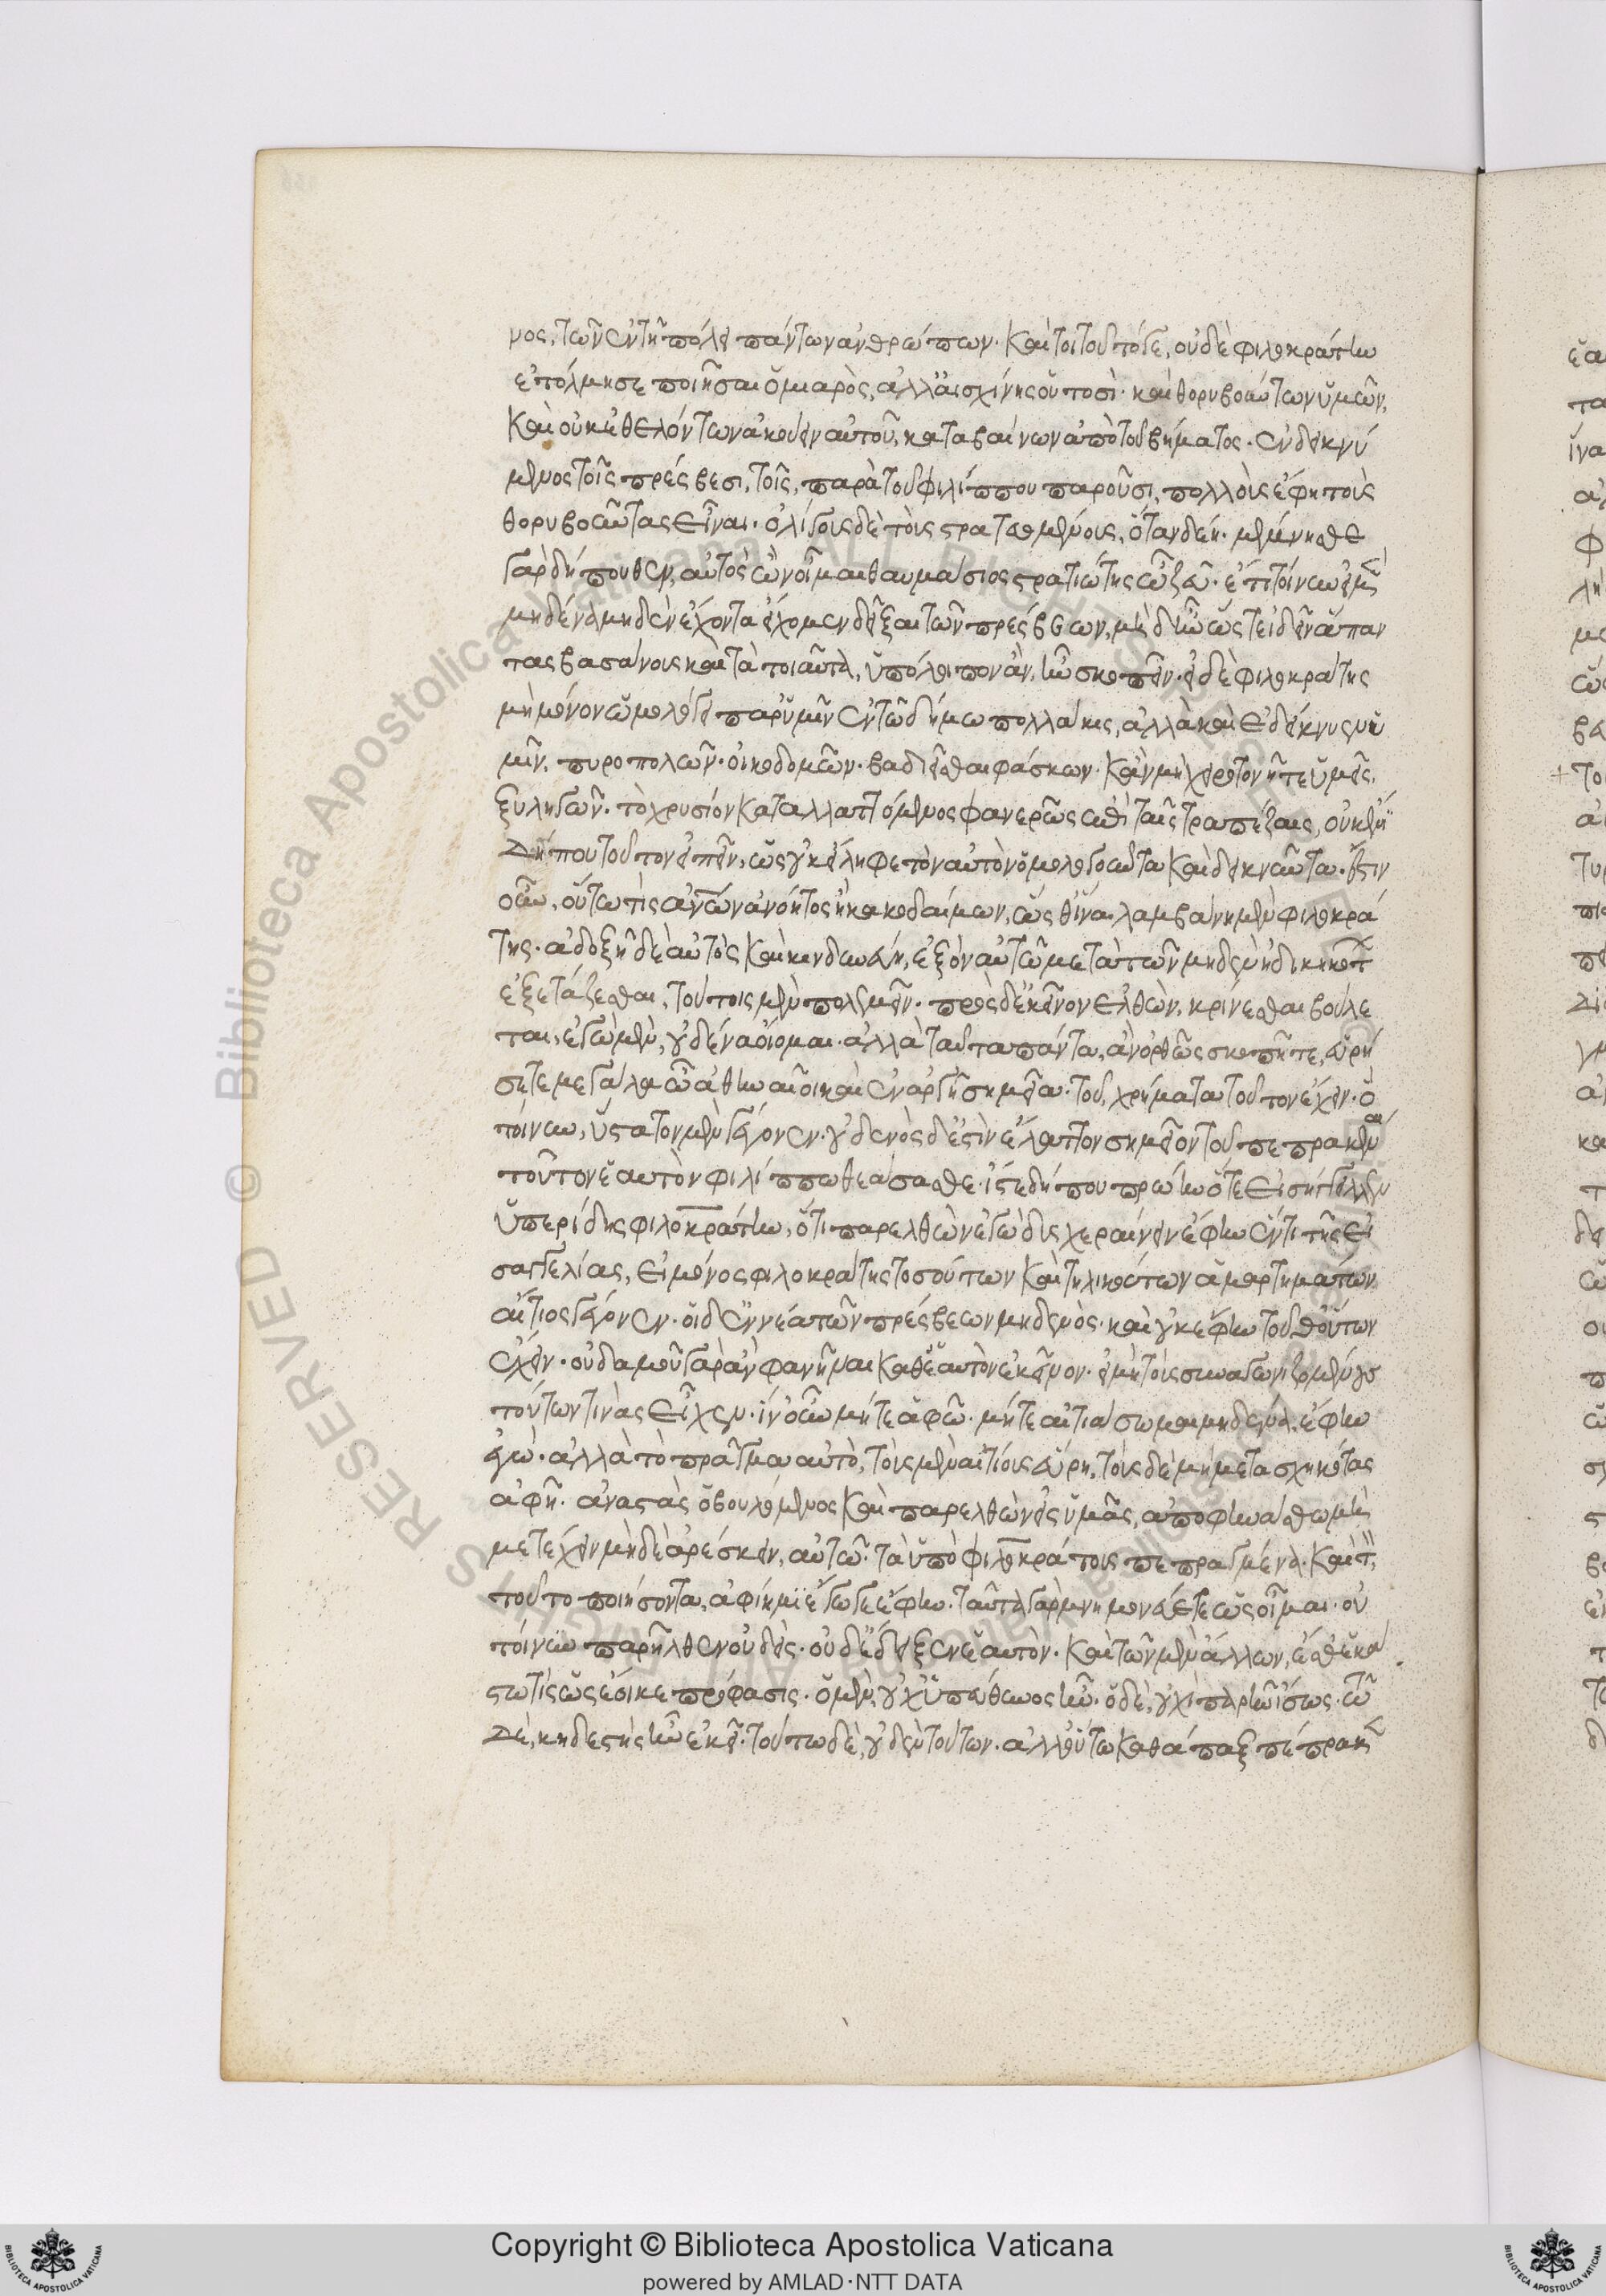 νος, τῶν ἐν τῆ πόλει πάντων ἀνθρώπων· καί τοι τοῦτό γε, οὐδὲ φιλοκράτην
ἐτόλμησε ποιῆσαι ὁ μιαρὸς, ἀλλ' αἰσχίνης οὑτοσί· καὶ θορυβούντων ὑμῶν,
καὶ οὐκ ἐθελόντων ἀκούειν αὐτοῦ, καταβαίνων ἀπὸ τοῦ βήματος· ἐνδεικνύ
μενος τοῖς πρέσβεσι, τοῖς, παρὰ τοῦ φιλίππου παροῦσι, πολλοὺς ἔφη τοὺς
θορυβοῦντας εἶναι· ὀλίγους δὲ τοὺς στρατευομένους, ὅταν δέη· μέμνησθε
γὰρ δήπουθεν, αὐτὸς ὢν οἶμαι θαυμάσιος στρατιώτης ὦ ζεῦ· ἔτι τοίνυν εἰ μὲν
μηδένα μηδὲν ἔχοντα εἴχομεν δεῖξαι τῶν πρέσβεων, μὴ δ' ἦν ὥστε ἰδεῖν ἅπαν
τας βασάνους καὶ τὰ τοιαῦτα, ὑπόλοιπον ἂν, ἦν σκοπεῖν· εἰ δὲ φιλοκράτης
μὴ μόνον ὡμολόγει παρ' ὑμῖν ἐν τῶ δήμω πολλάκις, ἀλλὰ καὶ ἐδείκνυεν ὑ
μῖν, πυροπωλῶν· οἰκοδομῶν· βαδιεῖσθαι φάσκων· κἂν μὴ χειροτονῆτε ὑμεῖς,
ξυληγῶν· τὸ χρυσίον καταλλαττόμενος φανερῶς ἐπὶ ταῖς τραπέζαις, οὐκ ἔνι
δήπου τοῦτον εἰπεῖν, ὡς οὐκ εἴληφε τὸν αὐτὸν ὁμολογοῦντα καὶ δεικνῦντα· ἔστιν
οὖν, οὕτω τὶς ἀνθρώπων ἀνόητος ἢ κακοδαίμων, ὥσθ' ἵνα λαμβάνη μὲν φιλοκρά
της· ἀδοξῆ δὲ αὐτὸς καὶ κινδυνεύη, ἐξὸν αὐτῶ μετὰ τῶν μηδὲν ἠδικηκότων
ἐξετάζεσθαι, τούτοις μὲν πολεμεῖν· πρὸς δ' ἐκεῖνον ἐλθὼν, κρίνεσθαι βούλε
ται, ἐγὼ μὲν, οὐδένα οἴομαι· ἀλλὰ ταῦτα πάντα, ἂν ὀρθῶς σκοπῆτε, εὑρή
σετε μεγάλα ὦ ἀθηναῖοι καὶ ἐναργῆ σημεῖα· τοῦ, χρήματα τοῦτον ἔχειν· ὃ
τοίνυν, ὕστατον μὲν γέγονεν· οὐδενὸς δ' ἐστὶν ἔλαττον σημεῖον τοῦ πεπρακέναι
τοῦτον ἑαυτὸν φιλίππω θεάσασθε· ἴστε δήπου πρώην ὅτε εἰσήγγελλεν
ὑπερίδης φιλοκράτην, ὅτι παρελθὼν ἐγὼ δυσχεραίνειν ἔφην ἕν τι τῆς εἰ
σαγγελίας, εἰ μόνος φιλοκράτης τοσούτων καὶ τηλικούτων ἁμαρτημάτων
αἴτιος γέγονεν· οἱ δ' ἐννέα τῶν πρέσβεων μηδενὸς· καὶ οὐκ ἔφην τοῦθ' οὕτως
ἔχειν· οὐδαμοῦ γὰρ ἂν φανῆναι καθ' ἑαυτὸν ἐκεῖνον· εἰ μὴ τοὺς συναγωνιζομένους
τούτων τινὰς εἶχεν· ἵν' οὖν μήτε ἀφῶ· μήτε αἰτιάσωμαι μηδένα, ἔφην
ἐγὼ· ἀλλὰ τὸ πρᾶγμα αὐτὸ, τοὺς μὲν αἰτίους εὕρη, τοὺς δὲ μὴ μετασχηκότας
ἀφῆ· ἀναστὰς ὁ βουλόμενος καὶ παρελθὼν εἰς ὑμᾶς, ἀποφηνάσθω μὴ
μετέχειν μὴ δὲ ἀρέσκειν, αὐτῶ· τὰ ὑπὸ φιλοκράτους πεπραγμένα· καὶ τὸν
τοῦτο ποιήσοντα, ἀφίημι ἔγωγε ἔφην· ταῦτα γὰρ μνημονεύετε ὡς οἶμαι· οὐ
τοίνυν παρῆλθεν οὐδεὶς· οὐδ' ἔδειξεν ἑαυτὸν· καὶ τῶν μὲν ἄλλων, ἔσθ' ἑκά
στω τὶς ὡς ἔοικε πρόφασις· ὁ μὲν, οὐχ ὑπεύθυνος ἦν· ὁ δὲ, οὐχὶ παρῆν ἴσως· τῶ
δὲ, κηδεστὴς ἦν ἐκεῖ· τούτω δὲ, οὐδὲν τούτων· ἀλλ' οὕτω καθάπαξ πέπρακεν